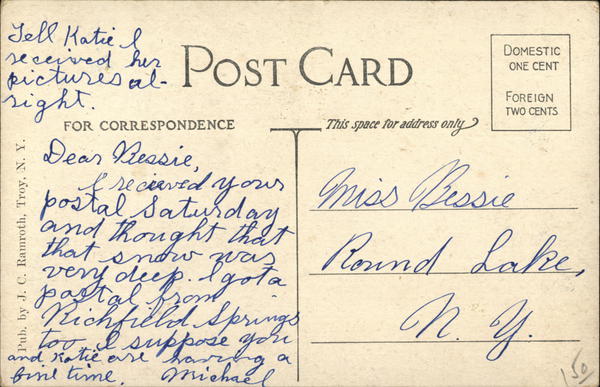 Tell Katie I
received her
pictures al-
right.
POST CARD
DOMESTIC
ONE CENT
FOREIGN
TWO CENTS
FOR CORRESPONDENCE
This space for address only
Pub. by J. C. Ramroth, Troy, N. Y.
Dear Bessie,
I recieved your
postal Saturday
and thought that
that snow was
very deep. I got a
postal from
Richfield Springs
too. I suppose you
and Katie are having a
fine time. Michael
Miss Bessie
Round Lake,
N. Y.
150/